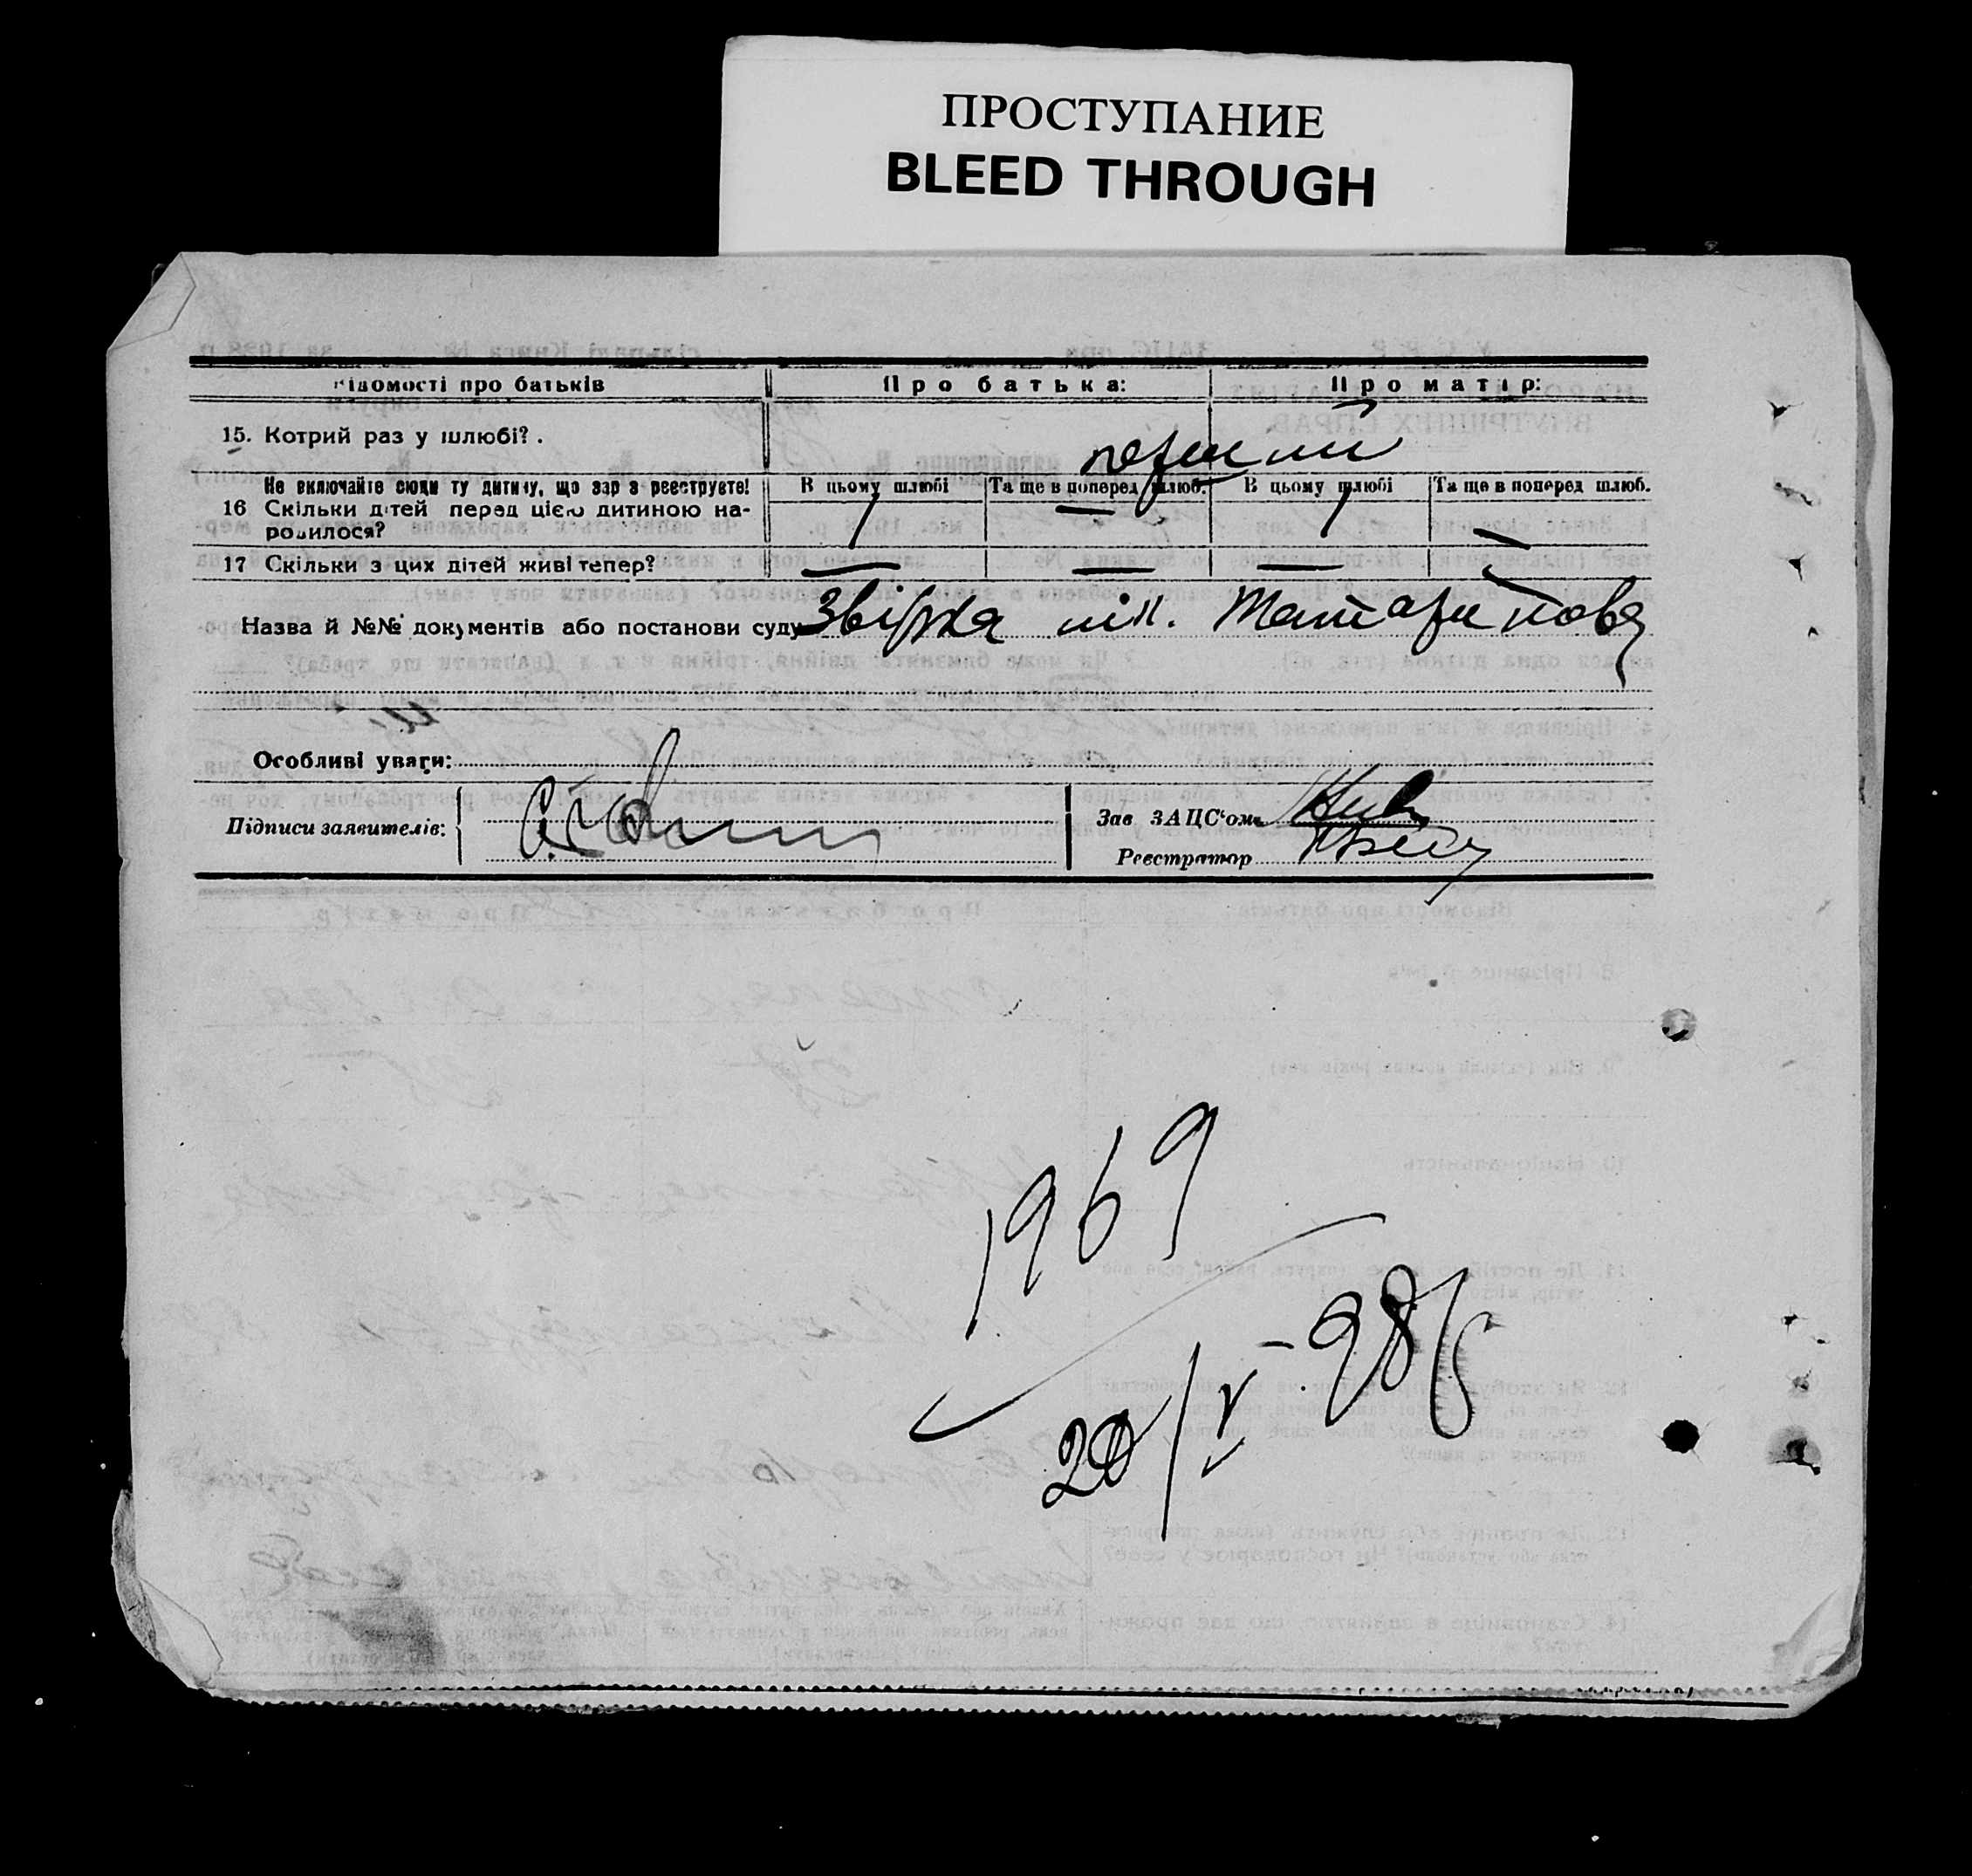 ПРОСТУПАНИЕ
BLEED THROUGH
Відомості про батьків Про батька: Про матір:
15. Котрий раз у шлюбі?. перший
Не включайте сюди ту дитину, що зараз реєструєте! В цьому шлюбі Та ще в поперед шлюб. В цьому шлюбі Та ще в поперед шлюб.
16 Скільки дітей перед цією дитиною на- 1 — 1 —
родилося?
17 Скільки з цих дітей живі тепер? — — — —
Назва й №№ документів або постанови суду Звірка
Особливі уваги:
Підписи заявителів: Зав ЗАЦС'ом
Реєстратор
1969
20/V-98б